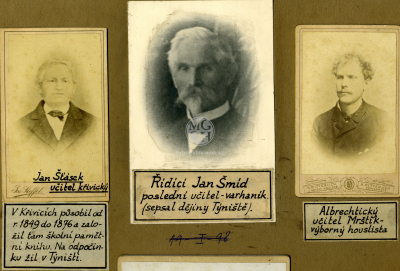 Jan Šťásek
učitel křivický
V Křivicích působil od
r. 1849 do 1876 a zalo-
žil tam školní pamět-
ní knihu. Na odpočin-
ku žil v Týništi.
Řídící Jan Šmíd
poslední učitel-varhaník.
(sepsal dějiny Týniště).
Albrechtický
učitel Mrštík-
výborný houslista